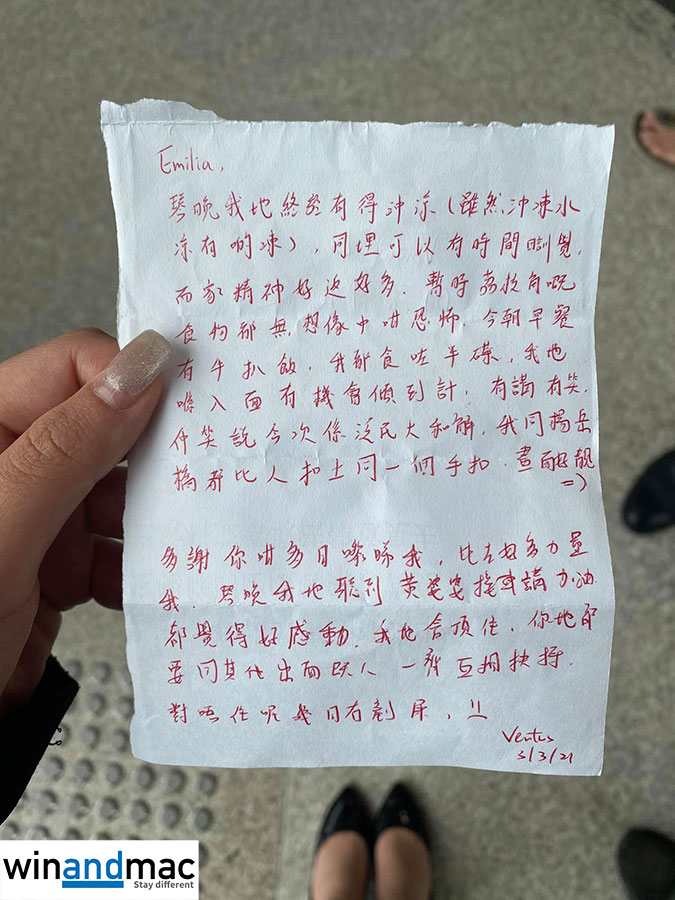 Emilia,
琴晚我地終於有得沖涼（雖然沖凍水
涼有啲凍），同埋可以有時間瞓覺，
而家精神好返好多．暫時荔枝角嘅
食物都無想像中咁恐怖．今朝早餐
有牛扒飯，我都食咗半碟，我地
喺入面有機會傾到計，有講有笑，
仲笑說今次係泛民大和解，我同楊岳
橋都比人扣上同一個手扣．畫面靚
=)
多謝你咁多日嚟睇我，比左好多力量
我．琴晚我地聽到黃婆婆接車講加油
都覺得好感動．我地會頂住，你地都
要同其他出面既人一齊互相扶持．
對唔住呢幾日冇剃鬍，!!
Ventus
3/3/21
winandmac
Stay different